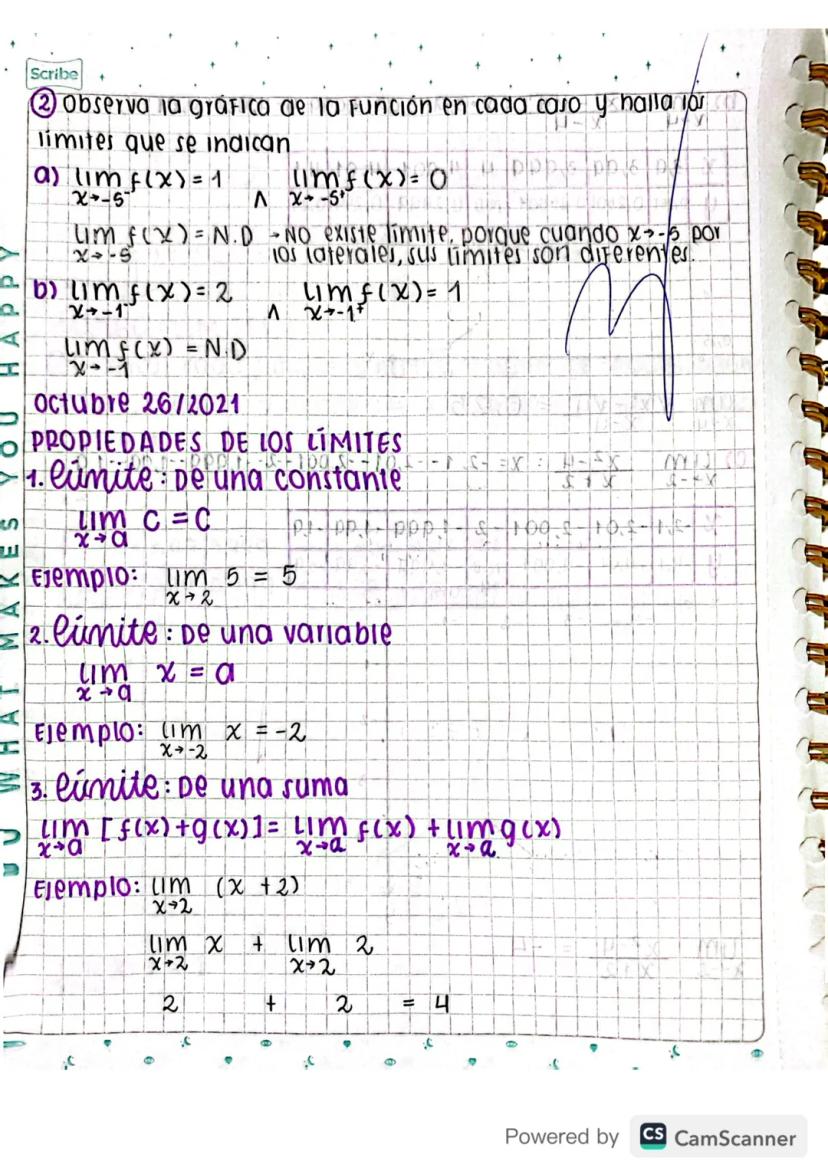 Scribe
② Observa la gráfica de la función en cada caso y halla los
límites que se indican
a) lim f(x) = 1 ∧ lim f(x) = 0
x→-5⁻ x→-5⁺
lim f(x) = N.D → No existe límite, porque cuando x→-5 por
x→-5 los laterales, sus límites son diferentes.
b) lim f(x) = 2 ∧ lim f(x) = 1
x→-1⁻ x→-1⁺
lim f(x) = N.D
x→-1
Octubre 26/2021
PROPIEDADES DE LOS LÍMITES
1. Límite: De una constante
lim C = C
x→a
Ejemplo: lim 5 = 5
x→2
2. Límite: De una variable
lim x = a
x→a
Ejemplo: lim x = -2
x→-2
3. Límite: De una suma
lim [f(x)+g(x)] = lim f(x) + lim g(x)
x→a x→a x→a
Ejemplo: lim (x+2)
x→2
lim x + lim 2
x→2 x→2
2 + 2 = 4
U WHAT MAKES YOU HAPPY
Powered by CS CamScanner